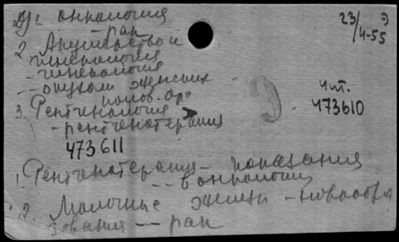 Др. онкология
— рак
23/4-55 Э
2. Акушерство и
гинекология
— гинекология
— опухоли женских
полов. орг.
Чит.
473610
3. Рентгенология
— рентгенотерапия
473611
1. Рентгенотерапия — показания
— в онкологии
2. Молочные железы — новообра
зования — рак